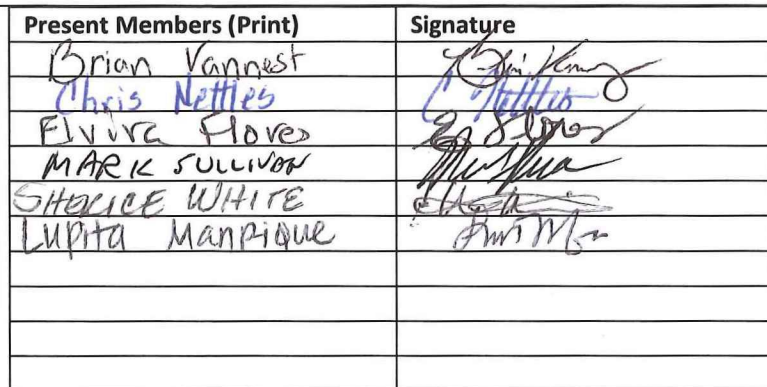 Present Members (Print) Signature
Brian Vannest
Chris Nettles C Nettles
Elvira Flores E Flores
MARK SULLIVAN
SHERICE WHITE
Lupita Manrique